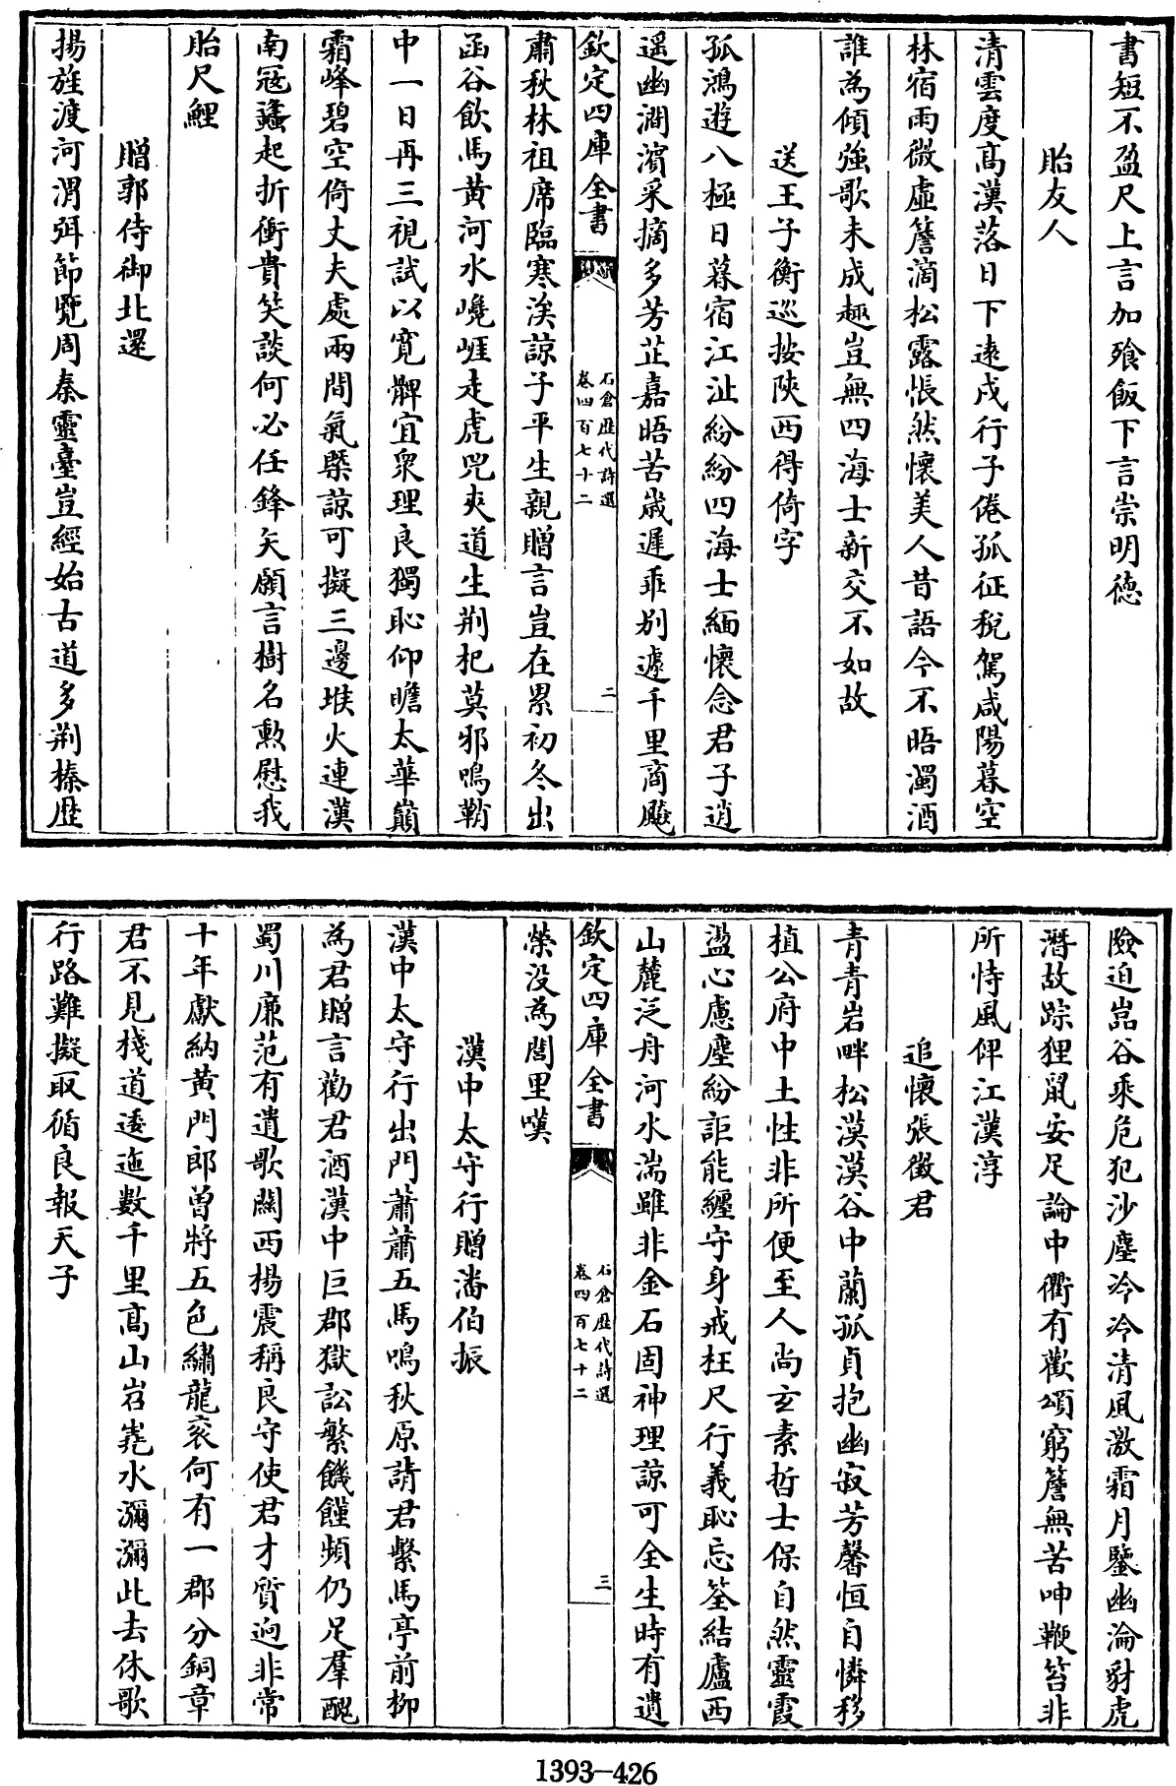 書短不盈尺上言加飧飯下言崇明徳
貽友人
清雲度高漢落日下逺戍行子倦孤征稅駕咸陽暮空
林宿雨微虛簷滴松露悵然懷美人昔語今不晤濁酒
誰為傾強歌未成趣豈無四海士新交不如故
送王子衡巡按陜西得倚字
孤鴻遊八極日暮宿江沚紛紛四海士緬懷念君子逍
遥幽澗濱采摘多芳芷嘉晤苦歳遲乖别遽千里商飈
欽定四庫全書
石倉歴代詩選
卷四百七十二
二
肅秋林祖席臨寒涘諒子平生親贈言豈在累初冬出
函谷飲馬黄河水巉崕走虎兕夾道生荆杞莫邪鳴鞘
中一日再三視試以寛髀宜衆理良獨恥仰瞻太華巔
霜峰碧空倚丈夫處兩間氣槩諒可擬三邊堠火連漢
南冦蠭起折衝貴笑談何必任鋒矢願言樹名勲慰我
貽尺鯉
贈郭侍御北還
揚旌渡河渭弭節覽周秦靈臺豈經始古道多荆榛歴
險迫嵓谷乘危犯沙塵冷冷清風激霜月鑒幽淪豺虎
潛故踪狸鼠安足論中衢有歡頌窮簷無苦呻鞭笞非
所恃風俾江漢淳
追懷張徴君
青青岩畔松漠漠谷中蘭孤貞抱幽寂芳馨恒自憐移
植公府中土性非所便至人尚玄素哲士保自然靈霞
盪心慮塵紛詎能纒守身戒枉尺行義恥忘筌結廬西
山麓泛舟河水湍雖非金石固神理諒可全生時有遺
欽定四庫全書
石倉歴代詩選
卷四百七十二
三
榮没為閭里嘆
漢中太守行贈潘伯振
漢中太守行出門蕭蕭五馬鳴秋原請君繫馬亭前栁
為君贈言勸君酒漢中巨郡獄訟繁饑饉頻仍足羣醜
蜀川亷范有遺歌關西楊震稱良守使君才質迥非常
十年獻納黄門郎曾將五色繡龍衮何有一郡分銅章
君不見棧道逶迤數千里高山岧嶤水瀰瀰此去休歌
行路難擬取循良報天子
1393-426